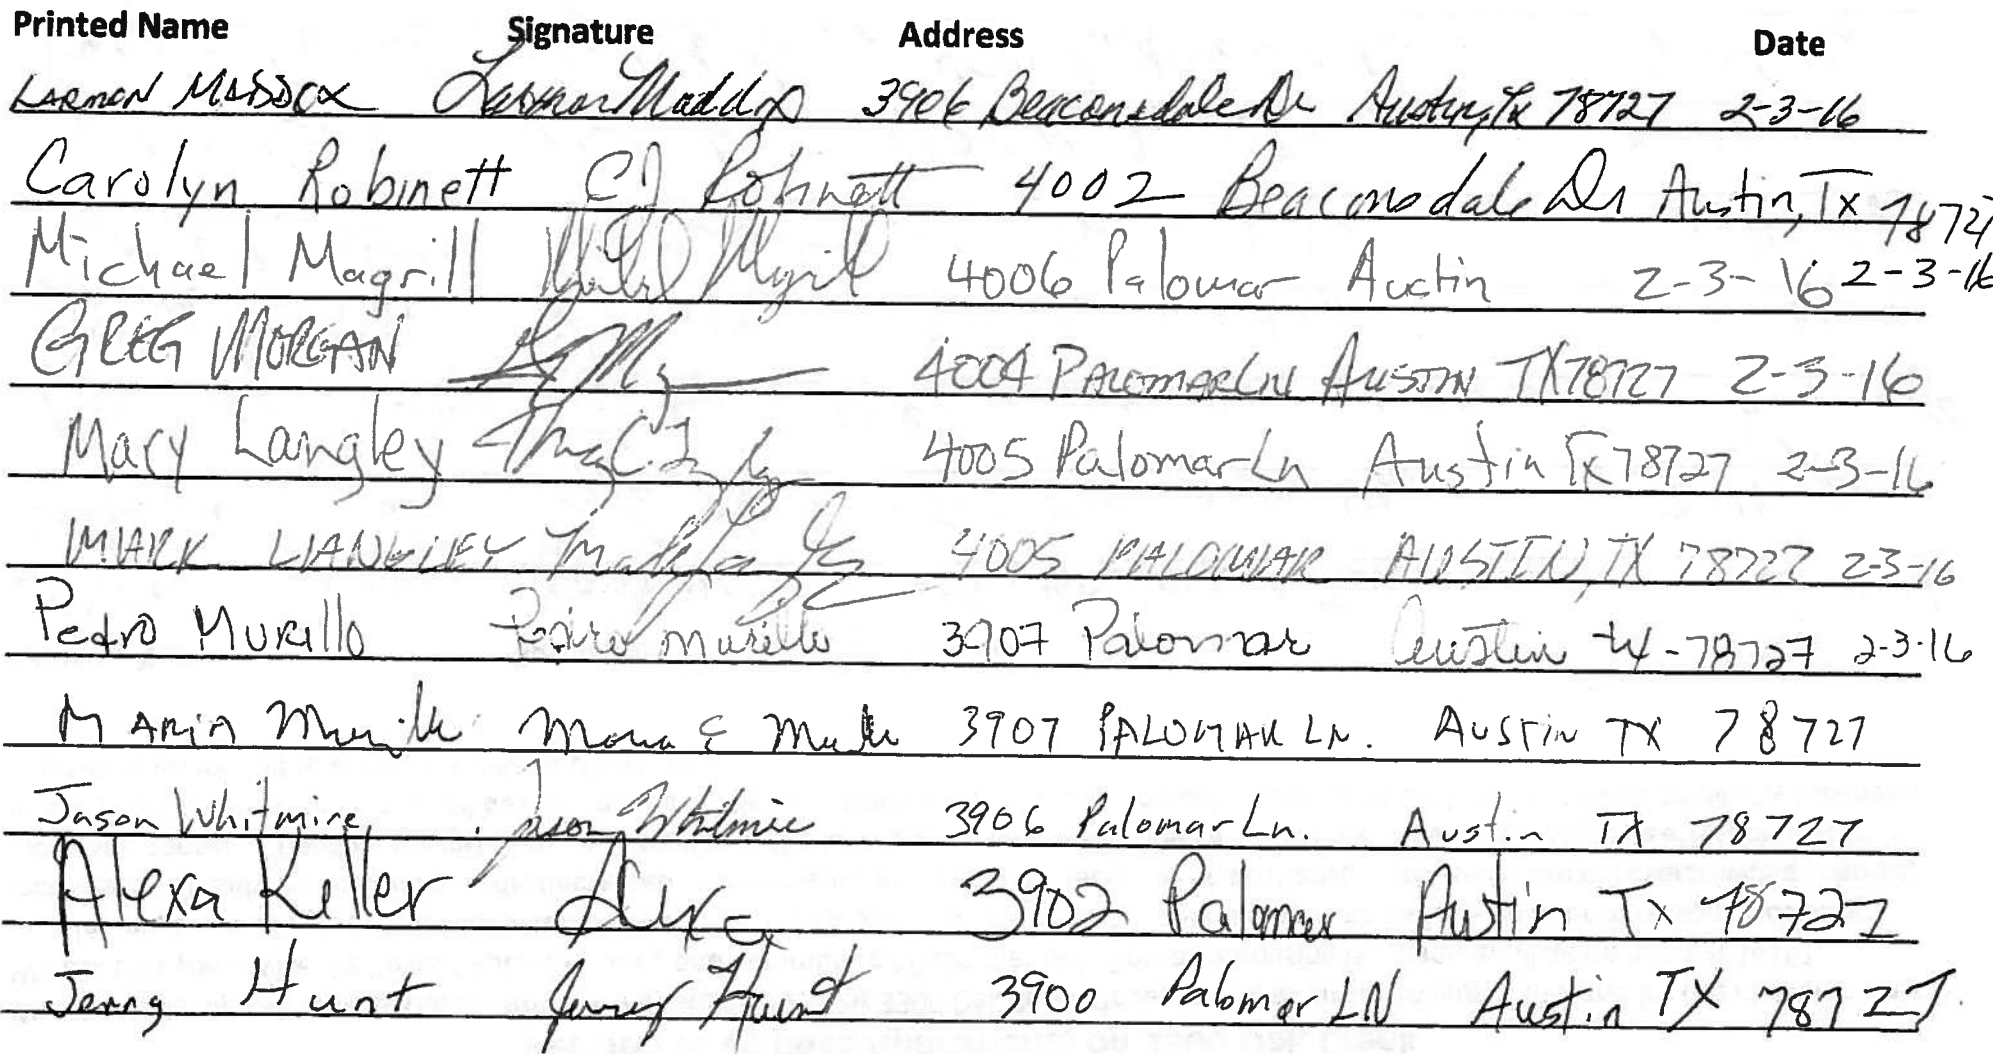 Printed Name Signature Address Date
LARMON MADDOX Larmon Maddox 3906 Beaconsdale Dr Austin, Tx 78727 2-3-16
Carolyn Robinett CJ Robinett 4002 Beaconsdale Dr Austin, Tx 78727
Michael Magrill 4006 Palomar Austin 2-3-16 2-3-16
GREG MORGAN 4004 PALOMAR LN AUSTIN TX 78727 2-3-16
Mary Langley 4005 Palomar Ln Austin Tx 78727 2-3-16
MARK LANGLEY 4005 PALOMAR AUSTIN, TX 78727 2-3-16
Pedro Murillo Pedro Murillo 3907 Palomar Austin tx-78727 2-3-16
MARIA Murillo 3907 PALOMAR LN. AUSTIN TX 78727
Jason Whitmire, Jason Whitmire 3906 Palomar Ln. Austin TX 78727
Alexa Keller Alexa 3902 Palomar Austin Tx 78727
Jerry Hunt Jerry Hunt 3900 Palomar LN Austin TX 78727.